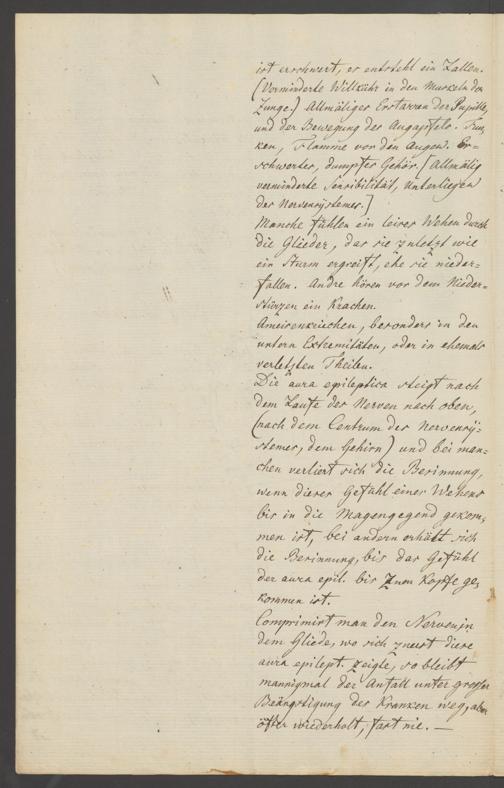 ist erschwert, es entsteht ein Lallen.
(Verminderte Willkühr in den Muskeln der
Zunge.) Allmäliges Erstarren der Pupille,
und der Bewegung des Augapfels. Fun-
ken, Flamme vor den Augen. Er=
schwertes, dumpfes Gehör. [Allmälig
verminderte Sensibilität, Unterliegen
des Nervensystemes.]
Manche fühlen ein leises Wehen durch
die Glieder, das sie zuletzt wie
ein Sturm ergreift, ehe sie nieder=
fallen. Andre hören vor dem Nieder-
stürzen ein Krachen.
Ameisenkriechen, besonders in den
untern Extremitäten, oder in ehemals
verletzten Theilen.
Die aura epileptica steigt nach
dem Laufe der Nerven nach oben,
(nach dem Centrum des Nervensy=
stemes, dem Gehirn) und bei man=
chen verliert sich die Besinnung,
wenn dieses Gefühl eines Wehens
bis in die Magengegend gekom=
men ist, bei andern erhält sich
die Besinnung, bis das Gefühl
der aura epil. bis zum Kopfe ge=
kommen ist.
Comprimirt man den Nerven in
dem Gliede, wo sich zuerst diese
aura epilept. zeigte, so bleibt
mannigmal der Anfall unter grosser
Beängstigung des Kranken weg, aber
öfter wiederholt, fast nie. —